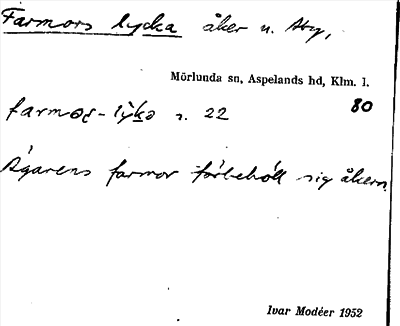 Farmors lycka åker u. Åby,
Mörlunda sn, Aspelands hd, Klm. l.
80
farmoṣ-lykə 2. 22
Ägarens farmor förbehöll sig åkern.
Ivar Modéer 1952